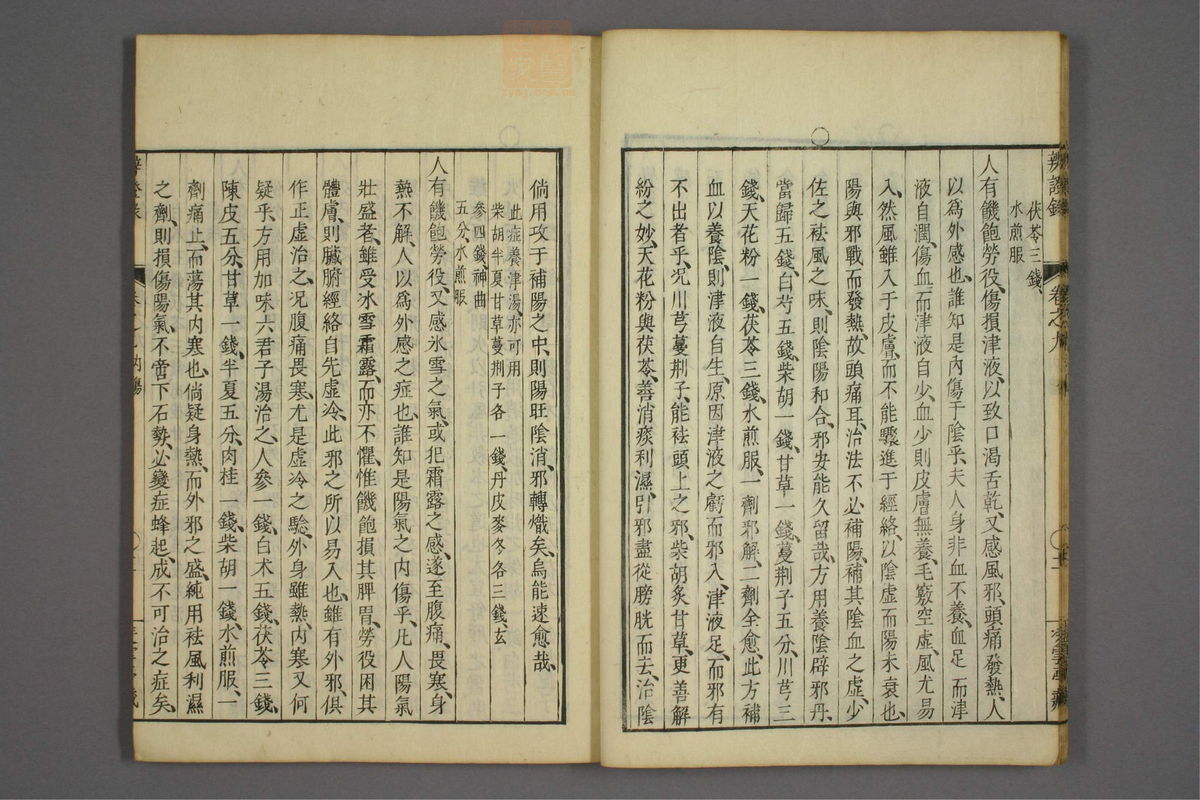 辨證錄 卷之九
茯苓三錢
水煎服
人有饑飽勞役、傷損津液、以致口渴舌乾、又感風邪、頭痛發熱、人
以爲外感也、誰知是內傷于陰乎、夫人身非血不養、血足而津
液自潤、傷血而津液自少、血少則皮膚無養、毛竅空虛、風尤易
入、然風雖入于皮膚、而不能驟進于經絡、以陰虛而陽未衰也、
陽與邪戰而發熱、故頭痛耳、治法不必補陽、補其陰血之虛、少
佐之祛風之味、則陰陽和合、邪安能久留哉、方用養陰辟邪丹、
當歸五錢、白芍五錢、柴胡一錢、甘草一錢、蔓荆子五分、川芎三
錢、天花粉一錢、茯苓三錢、水煎服、一劑邪解、二劑全愈、此方補
血以養陰、則津液自生、原因津液之虧而邪入、津液足、而邪有
不出者乎、况川芎蔓荆子、能袪頭上之邪、柴胡炙甘草、更善解
紛之妙、天花粉與茯苓、善消痰利濕、引邪盡從膀胱而去、治陰
倘用攻于補陽之中、則陽旺陰消、邪轉熾矣、烏能速愈哉、
此症養津湯、亦可用
柴胡半夏甘草蔓荆子各一錢、丹皮麥冬各三錢、玄
參四錢、神曲
五分、水煎服
人有饑飽勞役、又感冰雪之氣、或犯霜露之感、遂至腹痛、畏寒、身
熱不解、人以爲外感之症也、誰知是陽氣之內傷乎、凡人陽氣
壯盛者、雖受冰雪霜露、而亦不懼、惟饑飽損其脾胃、勞役困其
體膚、則臟腑經絡自先虛冷、此邪之所以易入也、雖有外邪、俱
作正虛治之、况腹痛畏寒、尤是虛冷之騐、外身雖熱、內寒又何
疑乎、方用加味六君子湯治之、人參一錢、白术五錢、茯苓三錢、
陳皮五分、甘草一錢、半夏五分、肉桂一錢、柴胡一錢、水煎服、一
劑痛止、而蕩其內寒也、倘疑身熱、而外邪之盛、純用袪風利濕
之劑、則損傷陽氣、不啻下石、勢必變症蜂起、成不可治之症矣、